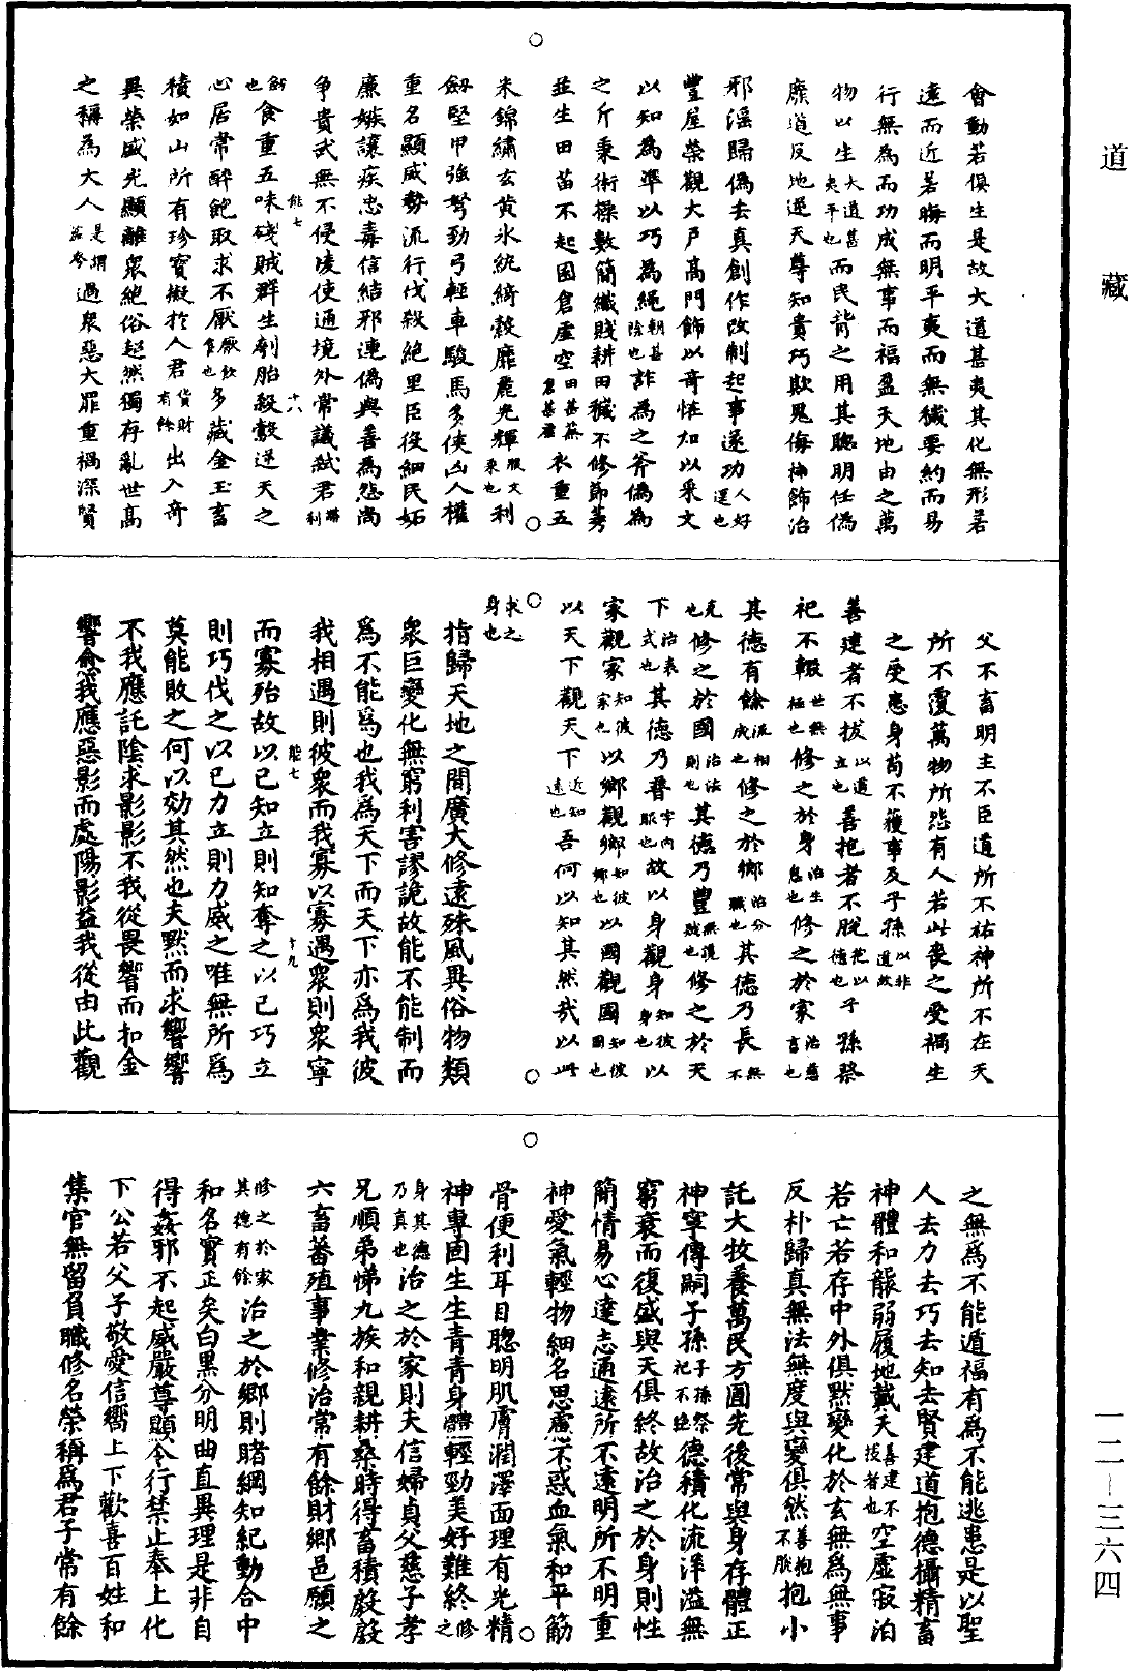 道藏
會動若俱生是故大道甚夷其化無形若
遠而近若晦而明平夷而無穢要約而易
行無為而功成無事而福盈天地由之萬
物以生大道甚夷平也而民背之用其聰明任偽
廢道反地逆天尊知貴巧欺鬼侮神飾治
邪淫歸偽去真創作改制起事遂功人好逕也
豐屋榮觀大戶高門飾以奇恠加以采文
以知為準以巧為繩朝甚除也詐為之斧偽為
之斤秉術操數簡纖賤耕田穢不修節莠
並生田苗不起囷倉虛空田甚蕪倉甚虛衣重五
采錦繡玄黃氷紈綺縠靡麗光輝服文采也利
劒堅甲強弩勁弓輕車駿馬多俠凶人權
重名顯威勢流行伐殺絕里臣役細民妬
廉嫉讓疾忠毒信結邪連偽與善為怨尚
爭貴武無不侵凌使通境外常議弑君帶利
劒也食重五味殘賊群生刳胎殺鷇逆天之
心居常醉飽取求不厭厭飲食也多藏金玉畜
積如山所有珍寶擬於人君貨財有餘出入奇
異榮盛光顯離眾絕俗超然獨存亂世高
之稱為大人是謂盜夸過眾惡大罪重禍深賢
能七
十八
父不畜明主不臣道所不祐神所不在天
所不覆萬物所怨有人若此喪之受禍生
之受患身苟不獲事及子孫以非道故
善建者不拔以道立也善抱者不脫抱以德也子孫祭
祀不輟世無極也修之於身治生息也修之於家治慈言也
其德有餘派相成也修之於鄉治分職也其德乃長無不
充也修之於國治法則也其德乃豐無頂賊也修之於天
下治表式也其德乃普宇內服也故以身觀身知彼身也以
家觀家知彼家也以鄉觀鄉知彼鄉也以國觀國知彼國也
以天下觀天下近知遠也吾何以知其然哉以此
求之身也
指歸天地之間廣大修遠殊風異俗物類
眾巨變化無窮利害謬詭故能不能制而
為不能為也我為天下而天下亦為我彼
我相遇則彼眾而我寡以寡遇眾則眾寧
而寡殆故以己知立則知奪之以己巧立
則巧伐之以己力立則力威之唯無所為
莫能敗之何以効其然也夫默而求響響
不我應託陰求影影不我從畏響而扣金
響愈我應惡影而處陽影益我從由此觀
能七
十九
之無為不能遁福有為不能逃患是以聖
人去力去巧去知去賢建道抱德攝精畜
神體和襲弱履地戴天善建不拔者也空虛寂泊
若亡若存中外俱默變化於玄無為無事
反朴歸真無法無度與變俱然善抱不脫抱小
託大牧養萬民方圓先後常與身存體正
神寧傳嗣子孫子孫祭祀不絕德積化流洋溢無
窮衰而復盛與天俱終故治之於身則性
簡情易心達志通遠所不遠明所不明重
神愛氣輕物細名思慮不惑血氣和平筋
骨便利耳目聰明肌膚潤澤面理有光精
神專固生生青青身體輕勁美好難終修之
身其德乃真也治之於家則夫信婦貞父慈子孝
兄順弟悌九族和親耕桑時得畜積殷殷
六畜蕃殖事業修治常有餘財鄉邑願之
修之於家其德有餘治之於鄉則睹綱知紀動合中
和名實正矣白黑分明曲直異理是非自
得姦邪不起威嚴尊顯令行禁止奉上化
下公若父子敬愛信嚮上下歡喜百姓和
集官無留負職修名榮稱為君子常有餘
一二-三六四